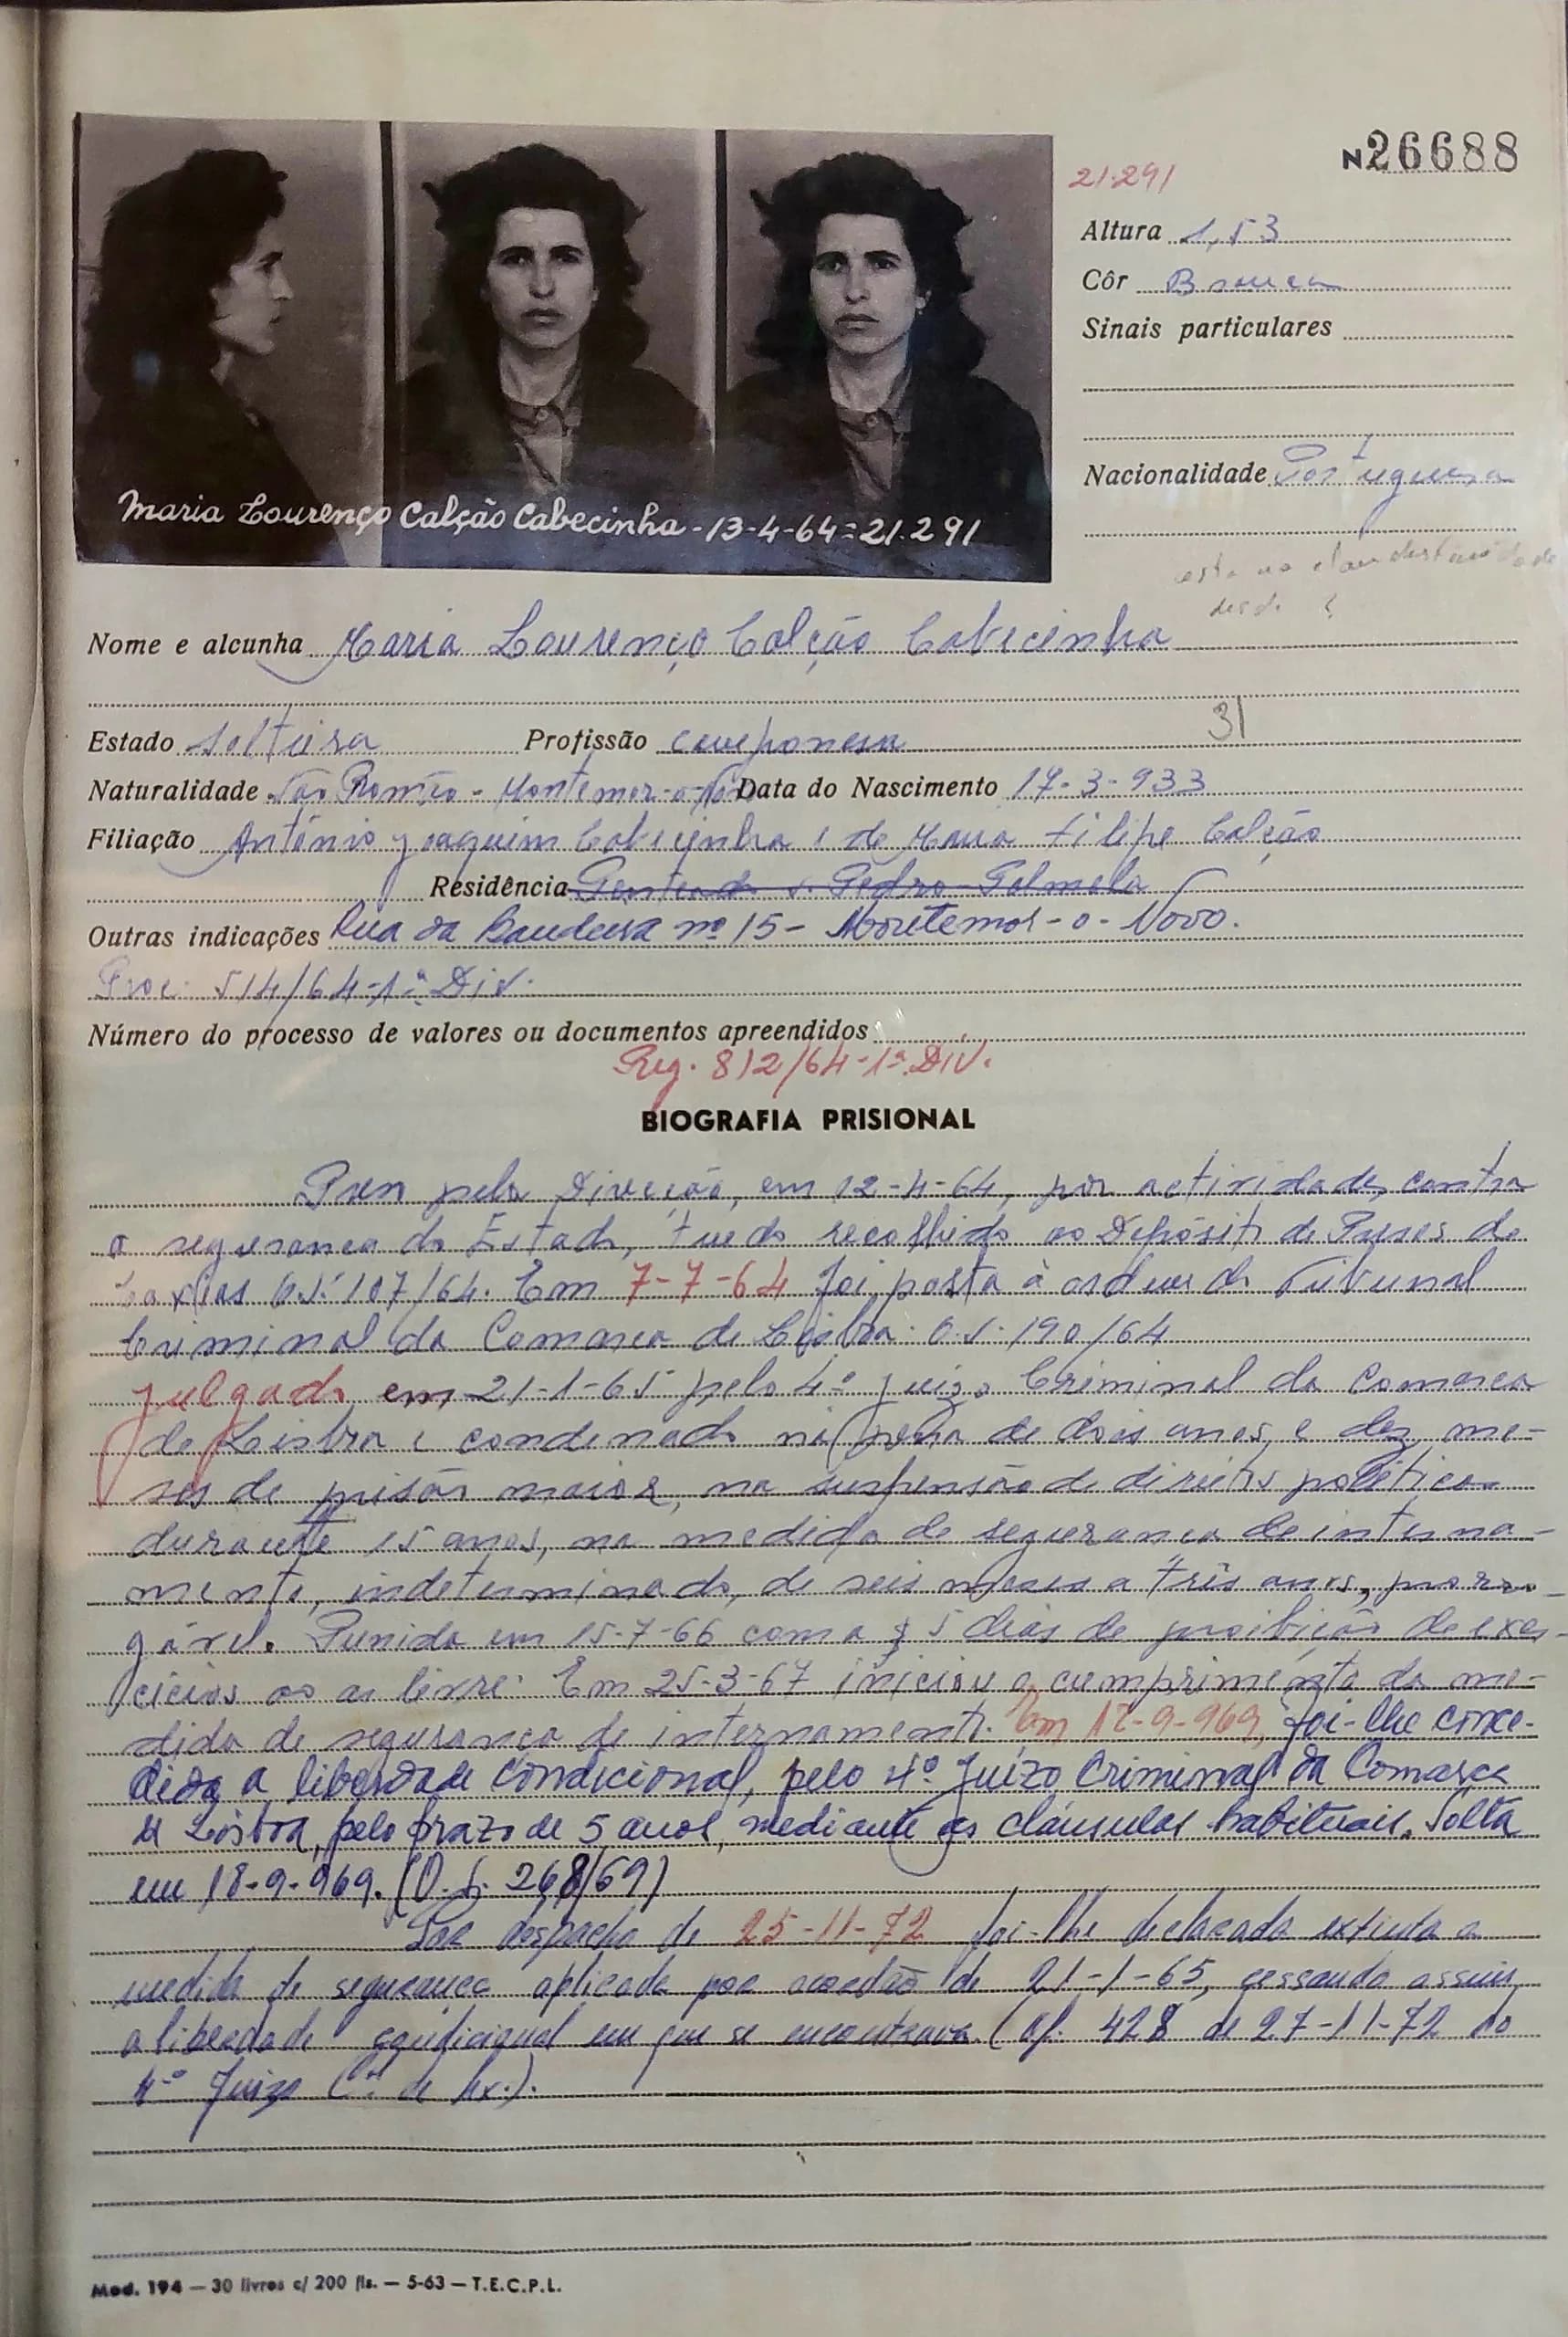 N 26688
21.291
Altura 1,53
Côr Branca
Sinais particulares
Nacionalidade Portuguesa
Maria Lourenço Calção Cabecinha - 13-4-64 = 21.291
está na clandestinidade
desde ?
Nome e alcunha Maria Lourenço Calção Cabecinha
31
Estado Solteira Profissão camponesa
Naturalidade São Romão - Montemor-o-Novo Data do Nascimento 17-3-933
Filiação António Joaquim Cabecinha e de Maria Filipe Calção
Residência S. Pedro - Palmela
Outras indicações Rua da Bandeira nº 15 - Montemor-o-Novo.
Proc. 514/64-1ª Div.
Número do processo de valores ou documentos apreendidos
Reg. 812/64-1ª Div.
BIOGRAFIA PRISIONAL
Presa pela Direcção, em 12-4-64, por actividades contra
a segurança do Estado, tendo recolhido ao Depósito de Presos de
Caxias O.S. 107/64. Em 7-7-64 foi posta à ordem do Tribunal
Criminal da Comarca de Lisboa. O.S. 190/64
Julgada em 21-1-65 pelo 4º Juizo Criminal da Comarca
de Lisboa e condenada na pena de dois anos e dez me-
ses de prisão maior, na suspensão de direitos políticos
durante 15 anos, na medida de segurança de interna-
mento, indeterminado, de seis meses a três anos, prorro-
gável. Punida em 15-7-66 com 5 dias de proibição de exer-
cicios ao ar livre. Em 25-3-67 iniciou o cumprimento da me-
dida de segurança de internamento. Em 17-9-969, foi-lhe conce-
dida a liberdade condicional, pelo 4º Juizo Criminal da Comarca
de Lisboa, pelo prazo de 5 anos, mediante as cláusulas habituais. Solta
em 18-9-969. (O.S. 268/69)
Por despacho de 25-11-72 foi-lhe declarada extinta a
medida de segurança aplicada por acordão de 21-1-65, cessando assim
a liberdade condicional em que se encontrava. (Of. 428 de 27-11-72 do
4º Juizo C. de Lx.).
Mod. 194 — 30 livros c/ 200 fls. — 5-63 — T.E.C.P.L.